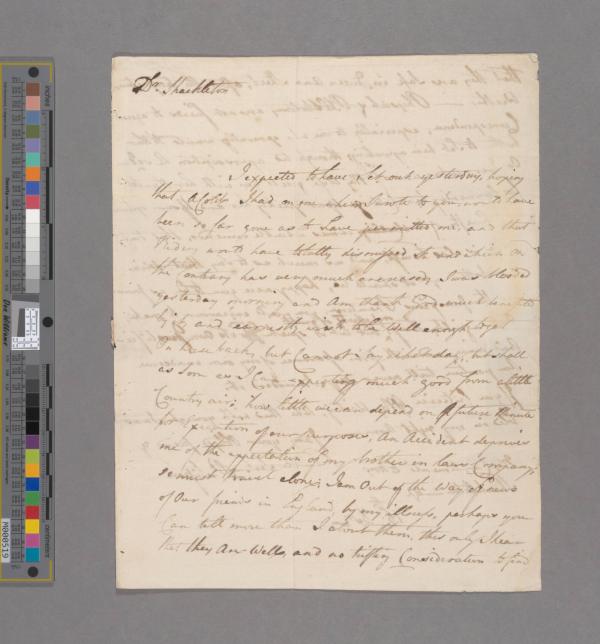 Dr. Shackleton
I expected to have set out yesterday, hoping
that a Cold I had on me when I wrote to you, would have
been so far gone as to have permitted me, and that
Riding would have totally dismissed it which on
the Contrary has very much increased, I was blooded
yesterday morning and Am thank God much benefitted
by it and earnestly wish to be well enough to get
on horseback, but Cannot say what day, but shall
as soon as I Can expecting much good from a little
Country air; how little we can depend on a future Minute
for Execution of our purposes, An Accident deprives
me of the expectation of my brother in laws Company;
I must travel alone, I am Out of the Way of news
of Our friends in England, by my illness, perhaps you
Can tell more than I about them, this only I hear
that they Are Well, and no trifling Consideration to find
inches
centimeters
Don Williams
M000519